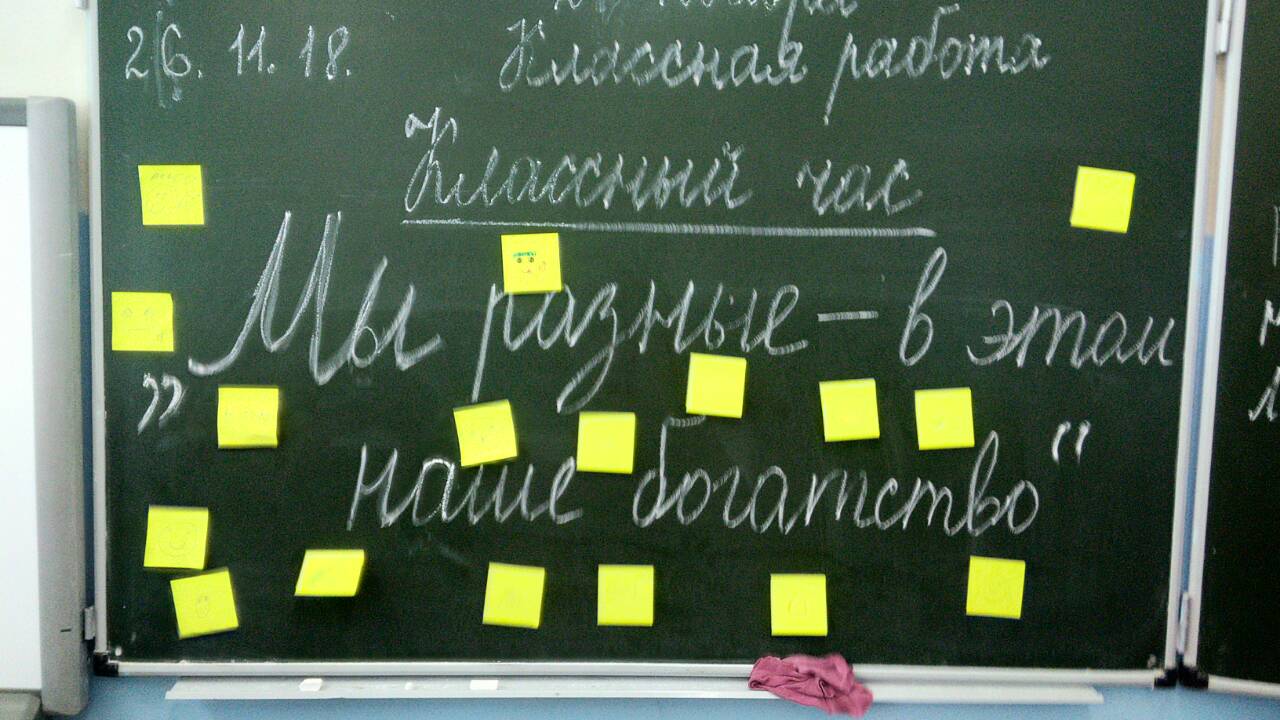 26. 11. 18.
Классная работа
Классный час
„Мы разные – в этом
наше богатство“